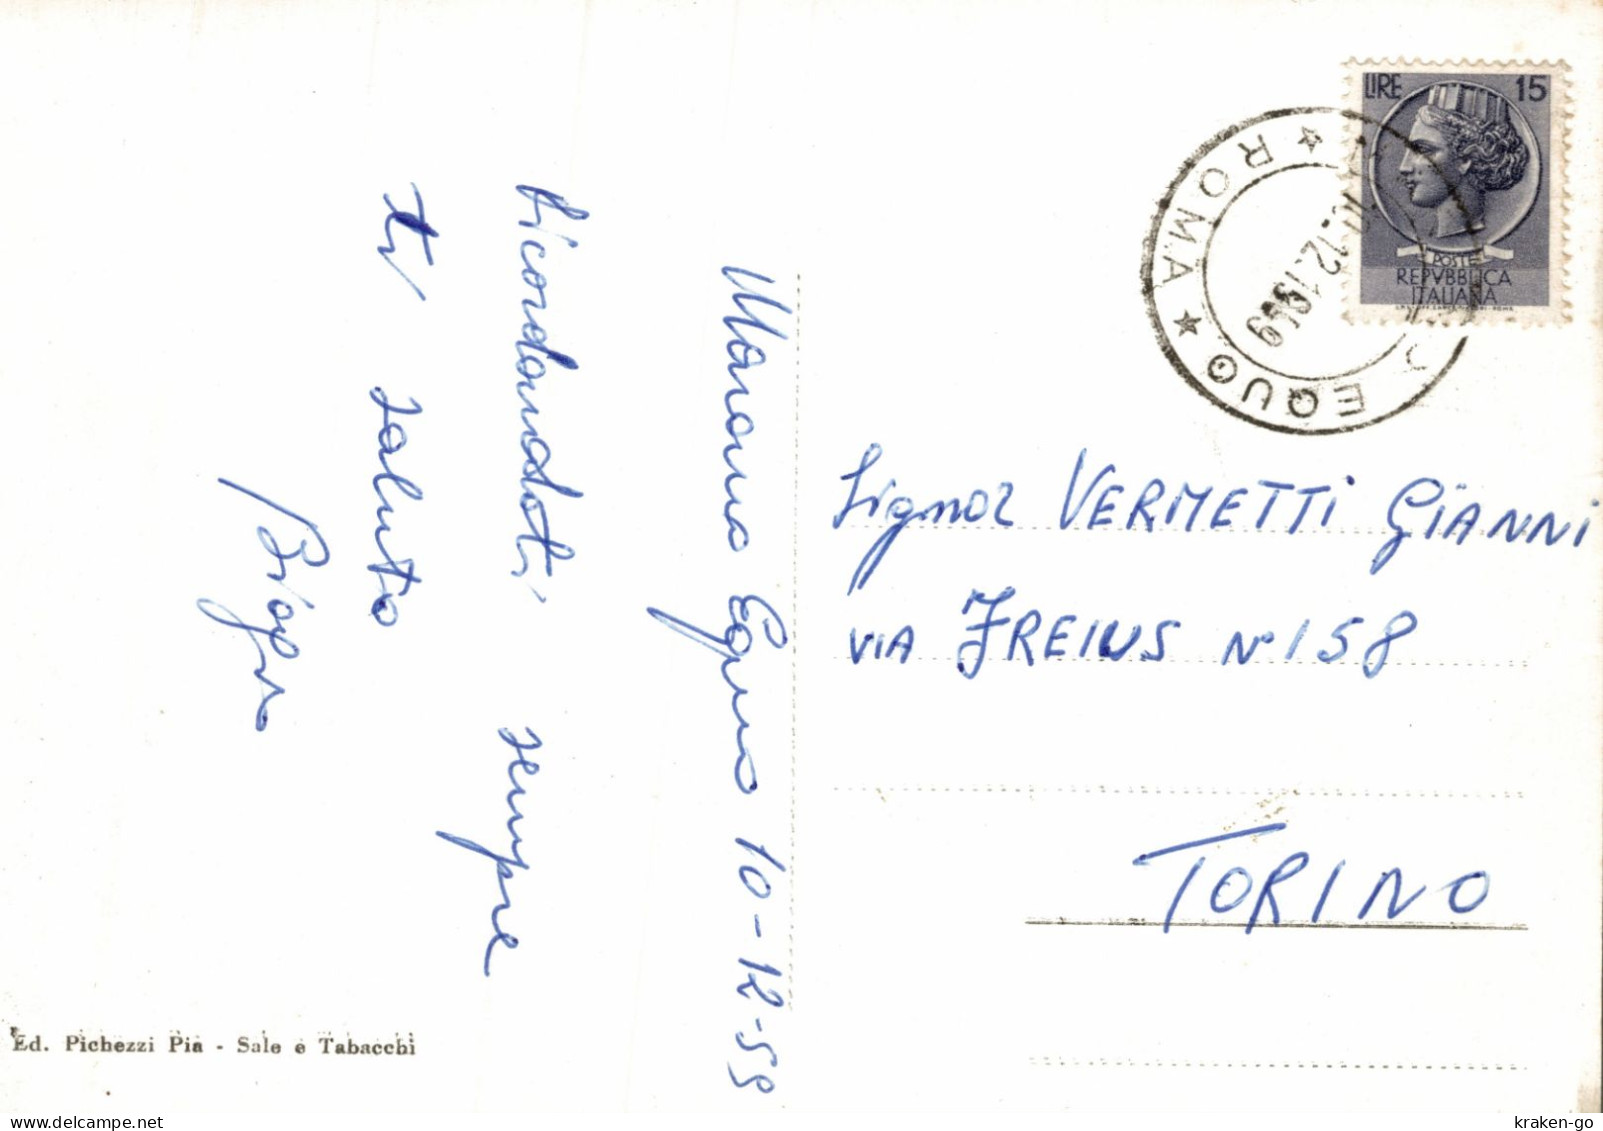 Marano Equo 10-12-59
Ricordandoti sempre
ti saluto
LIRE 15
POSTE
REPVBBLICA
ITALIANA
★ ROMA ★ EQUO
10.12.1959
Signor VERMETTI GIANNI
VIA FREIUS N° 158
TORINO
Ed. Pichezzi Pia - Sale e Tabacchi
delcampe.net
kraken-go